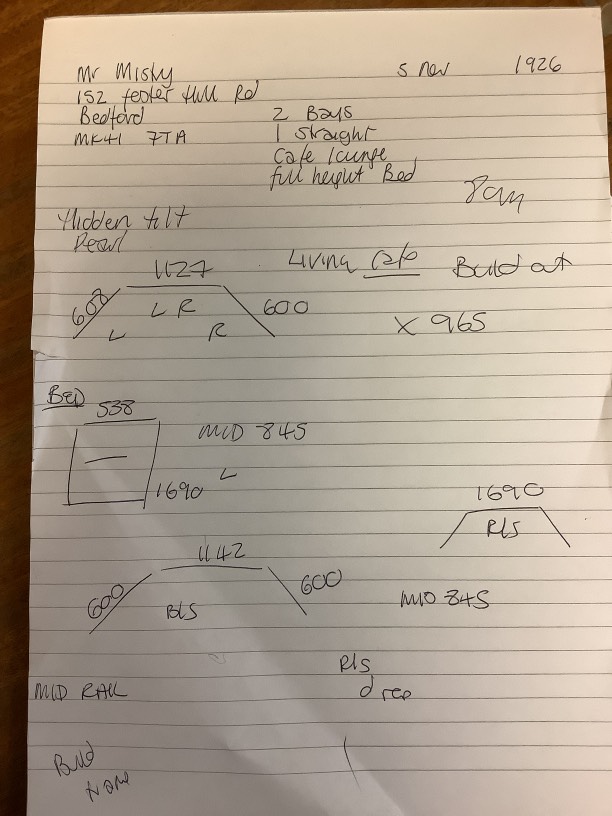 Mr Misky
5 Nov 1926
152 Hull Rd
Bedford
MK41 7TA
2 Bays
1 straight
Cafe lounge
full height Bed
8am
Hidden tilt
Pearl
Living Cafe Build out
1127
600 L R 600
L R
X 965
Bed
538
MID 845
L
1690
1690
RLS
1142
600 600
BLS
MID 845
RLS
drop
MID RAIL
Build
frame